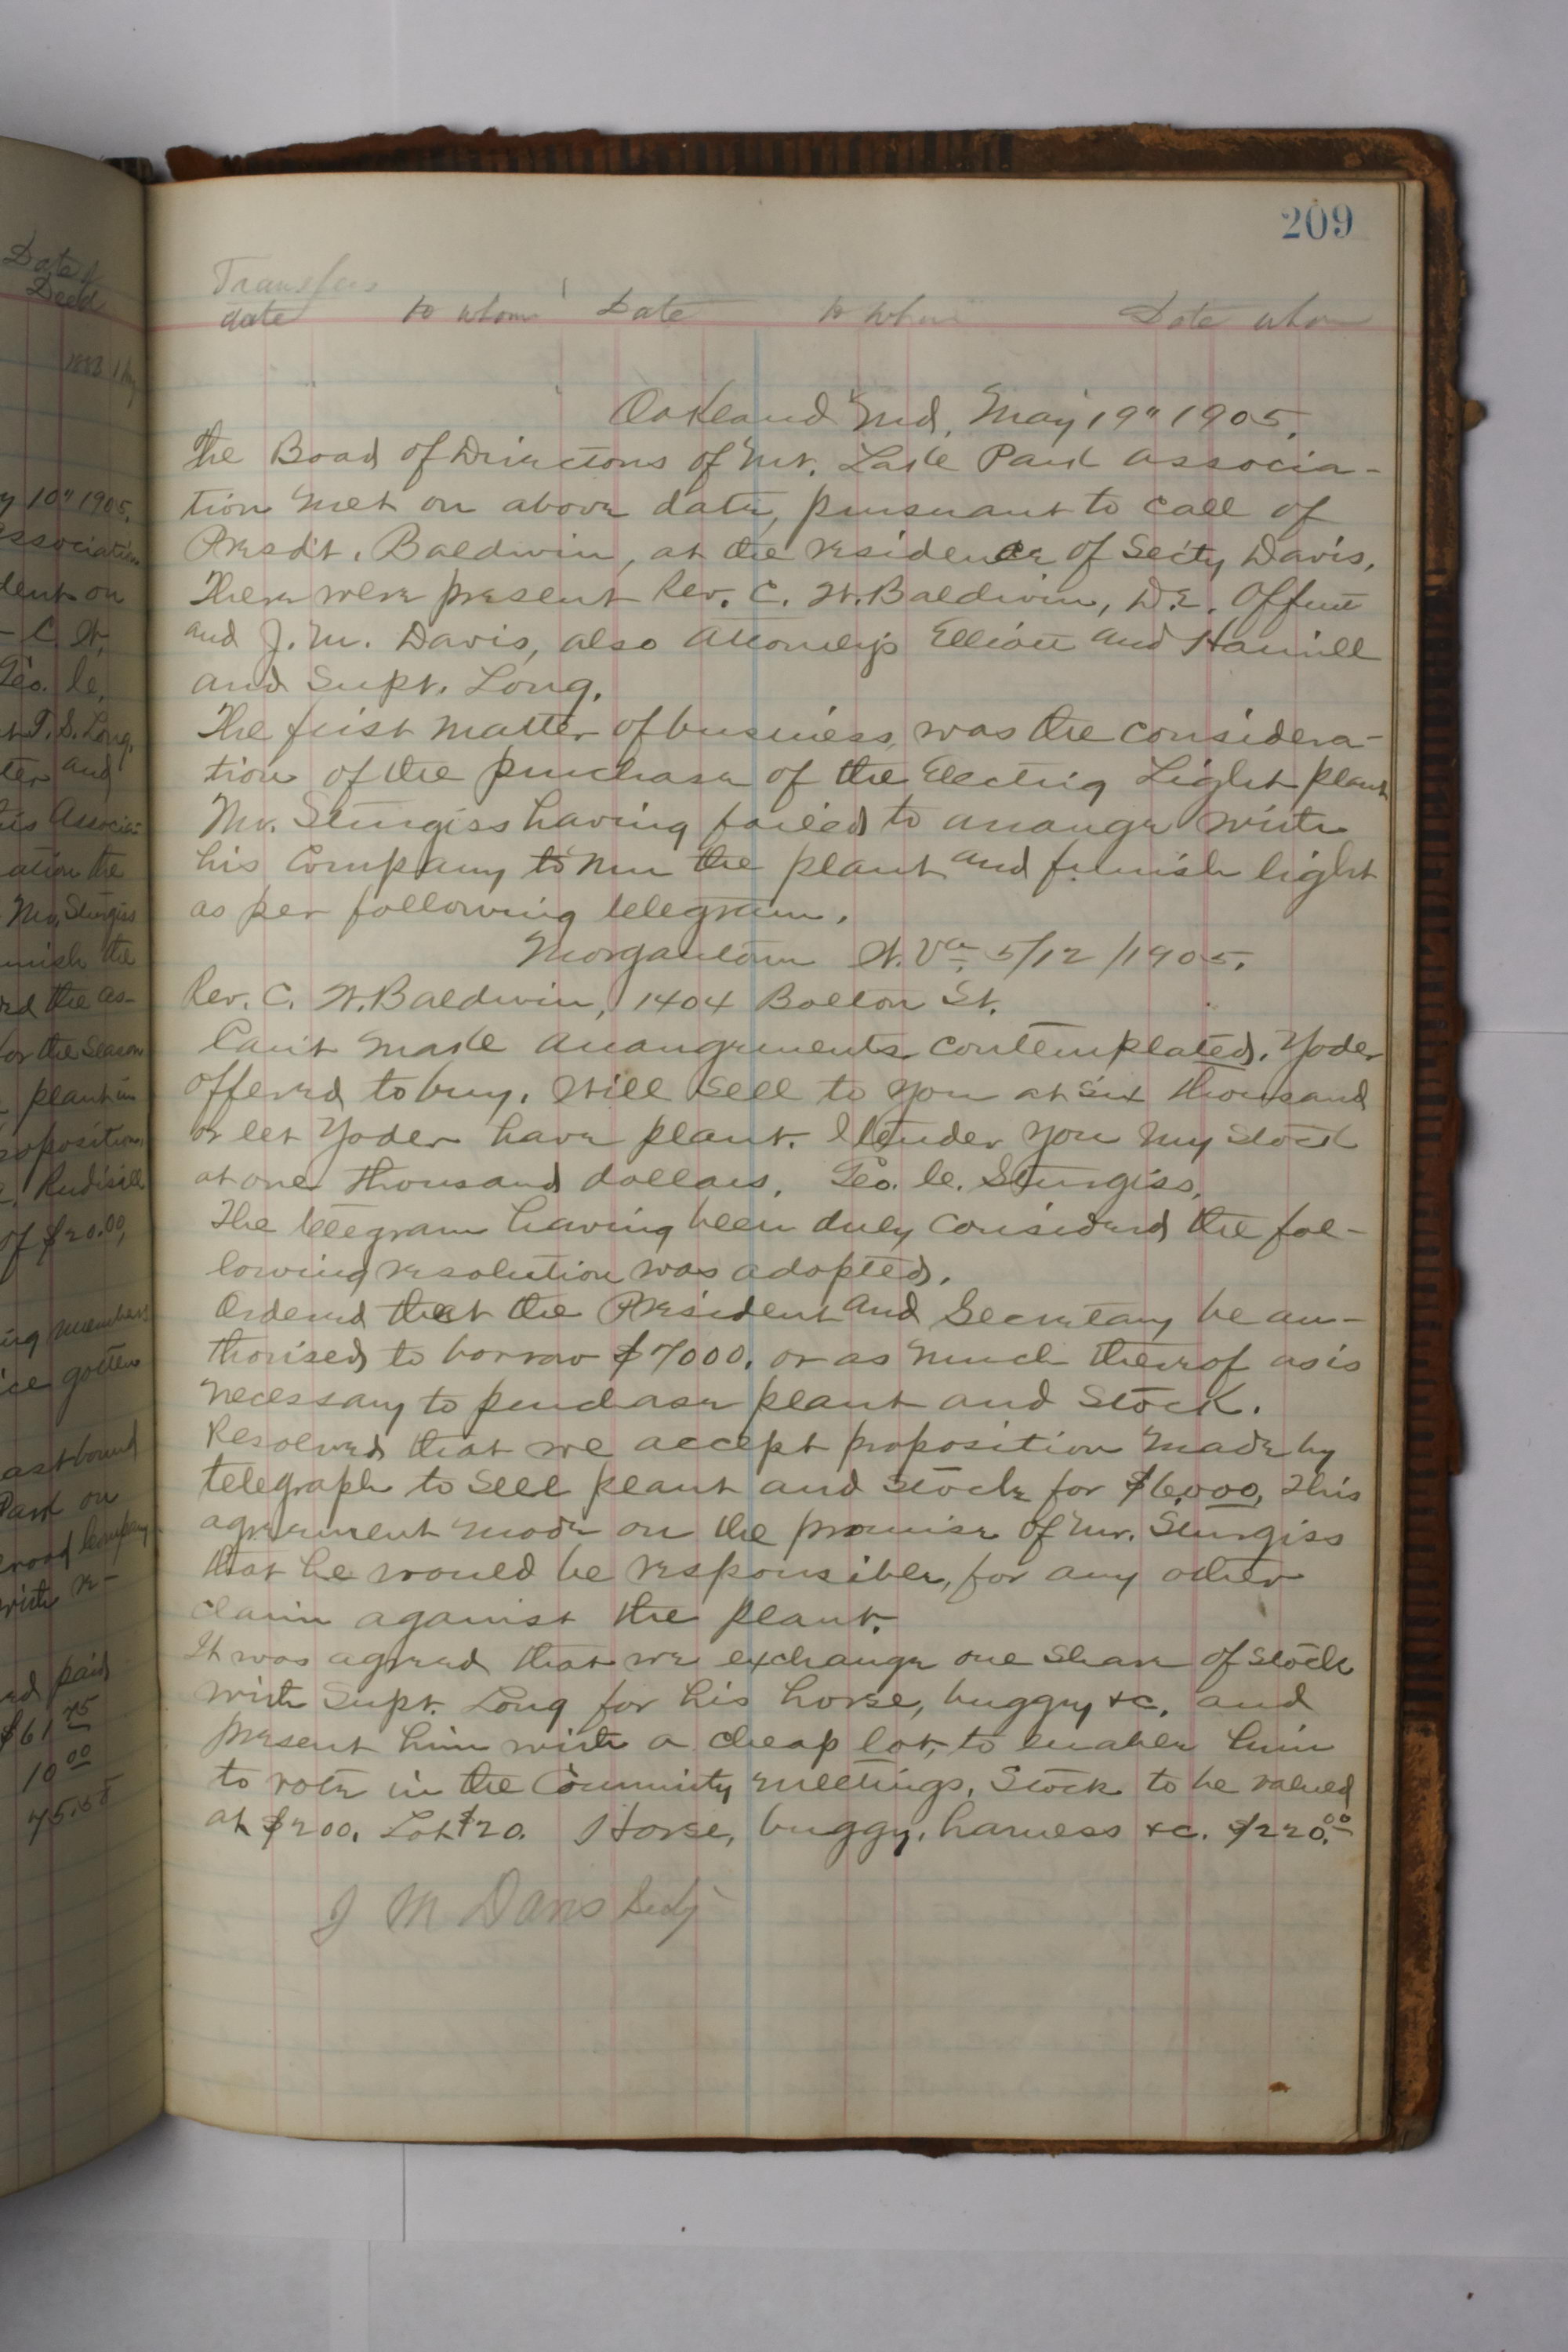 Date of
Deed
y 10" 1905.
Association
dent on
- C. W.
Geo. C.
t T. S. Long,
ter and
is Associa-
ation the
Mr. Sturgiss
nish the
rd the as-
for the season
plant in
roposition
Rudisill
of $20.00,
ing members
ice gotten
ast bound
Park on
road Company
with r-
ed paid
$61 75
10 00
75.55
209
Transfers
date to whom Date to whom Date whom
Oakland Md, May 19" 1905.
The Boad of Directors of Mt. Lake Park Associa-
tion met on above date, pursuant to call of
Presdt. Baldwin, at the residence of Secty Davis.
There were present Rev. C. W. Baldwin, D.E. Offutt
and J. M. Davis, also Attorneys Elliott and Hamill
and Supt. Long.
The first matter of business, was the considera-
tion of the purchase of the Electric Light plant
Mr. Sturgiss having failed to arrange with
his Company to run the plant and furnish light
as per following telegram.
Morgantown W. Va. 5/12/1905.
Rev. C. W. Baldwin, 1404 Bolton St.
Can't make arrangements contemplated. Yoder
offered to buy. Will sell to you at six thousand
or let Yoder have plant. I tender you my stock
at one thousand dollars. Geo. C. Sturgiss.
The telegram having been duly considered the fol-
lowing resolution was adopted.
Ordered that the President and Secretary be au-
thorised to borrow $7000. or as much thereof as is
necessary to purchase plant and stock.
Resolved that we accept proposition made by
telegraph to sell plant and stock for $6,000, This
agreement made on the promise of Mr. Sturgiss
that he would be responsible, for any other
claim against the plant.
It was agreed that we exchange one share of stock
with Supt. Long for his horse, buggy &c. and
present him with a cheap lot, to enable him
to vote in the Community meetings. Stock to be valued
at $200. Lot $20. Horse, buggy, harness &c. $220.00
J M Davis Secty